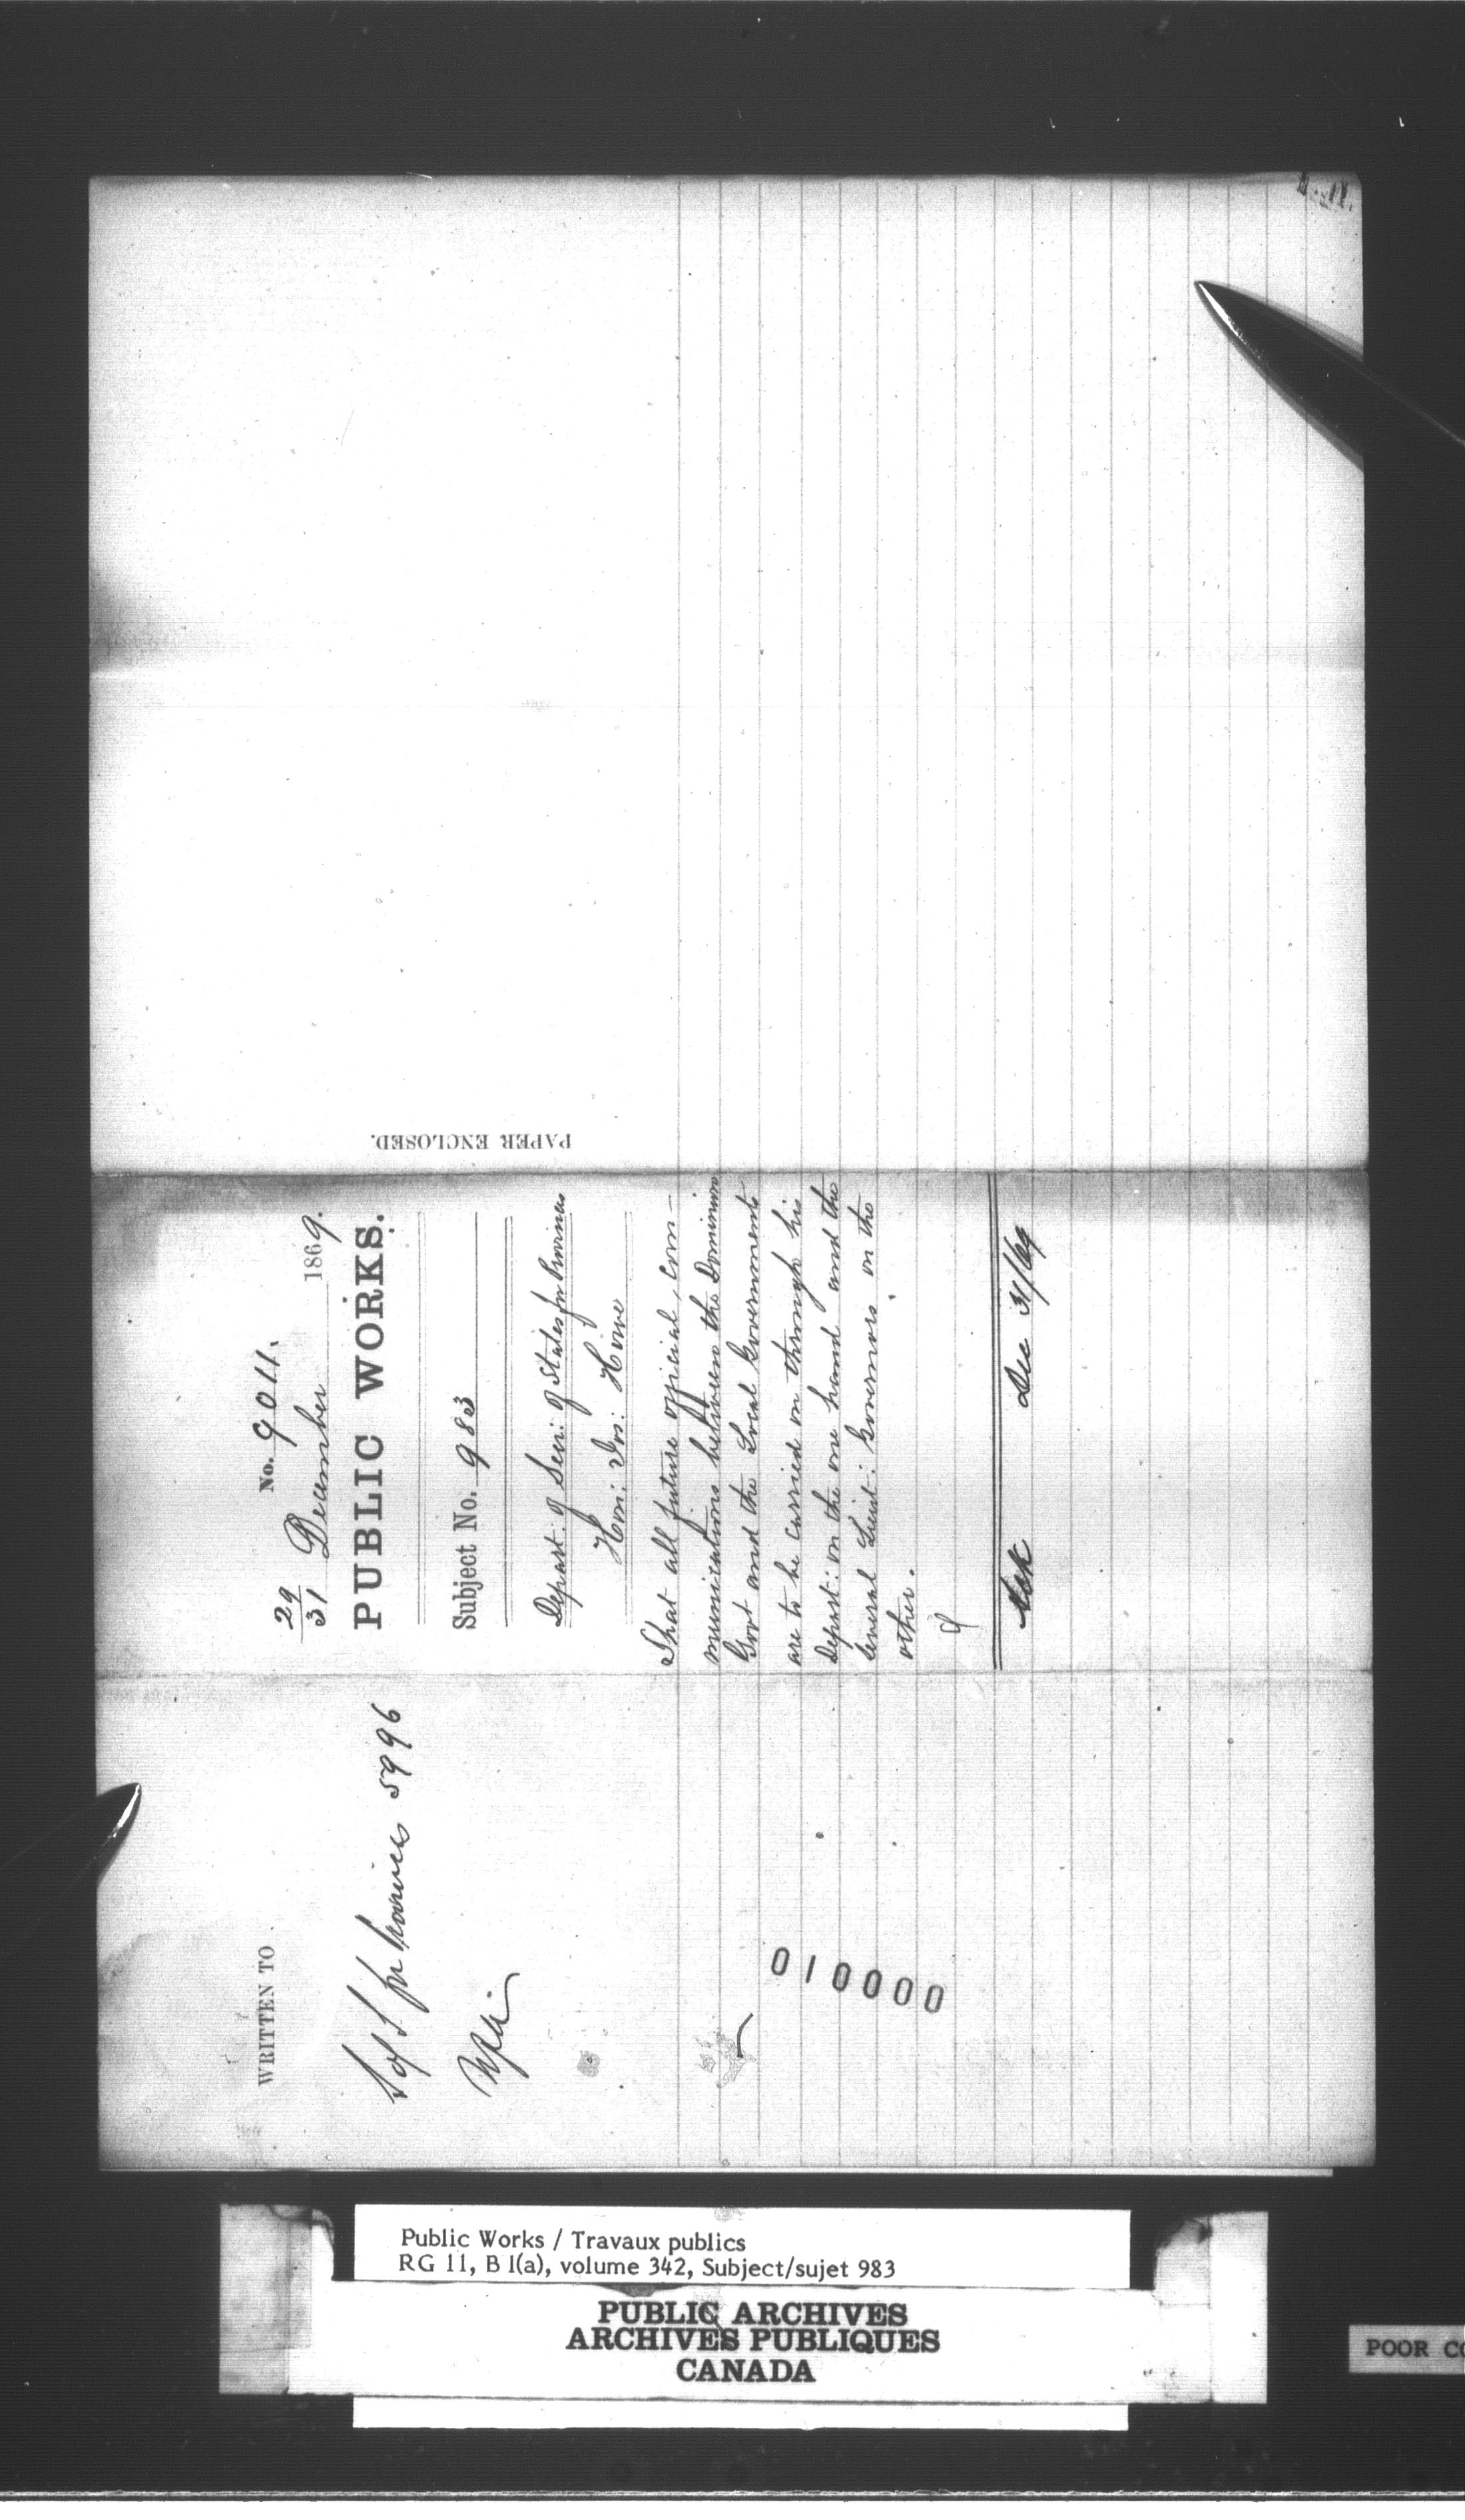 No. 9011.
29/31 December 1869.
PUBLIC WORKS.
Subject No. 983
Depart: of Secr: of States for Provinces
Hon: Jos: Howe
That all future official, com-
munications between the Dominion
Govt and the Local Governments
are to be carried on through his
Depart: on the one hand and the
several Lieut: Governors on the
other.
Ack Dec 31/69
WRITTEN TO
S of S for Provinces 5996
010000
PAPER ENCLOSED.
Public Works / Travaux publics
RG 11, B 1(a), volume 342, Subject/sujet 983
PUBLIC ARCHIVES
ARCHIVES PUBLIQUES
CANADA
POOR